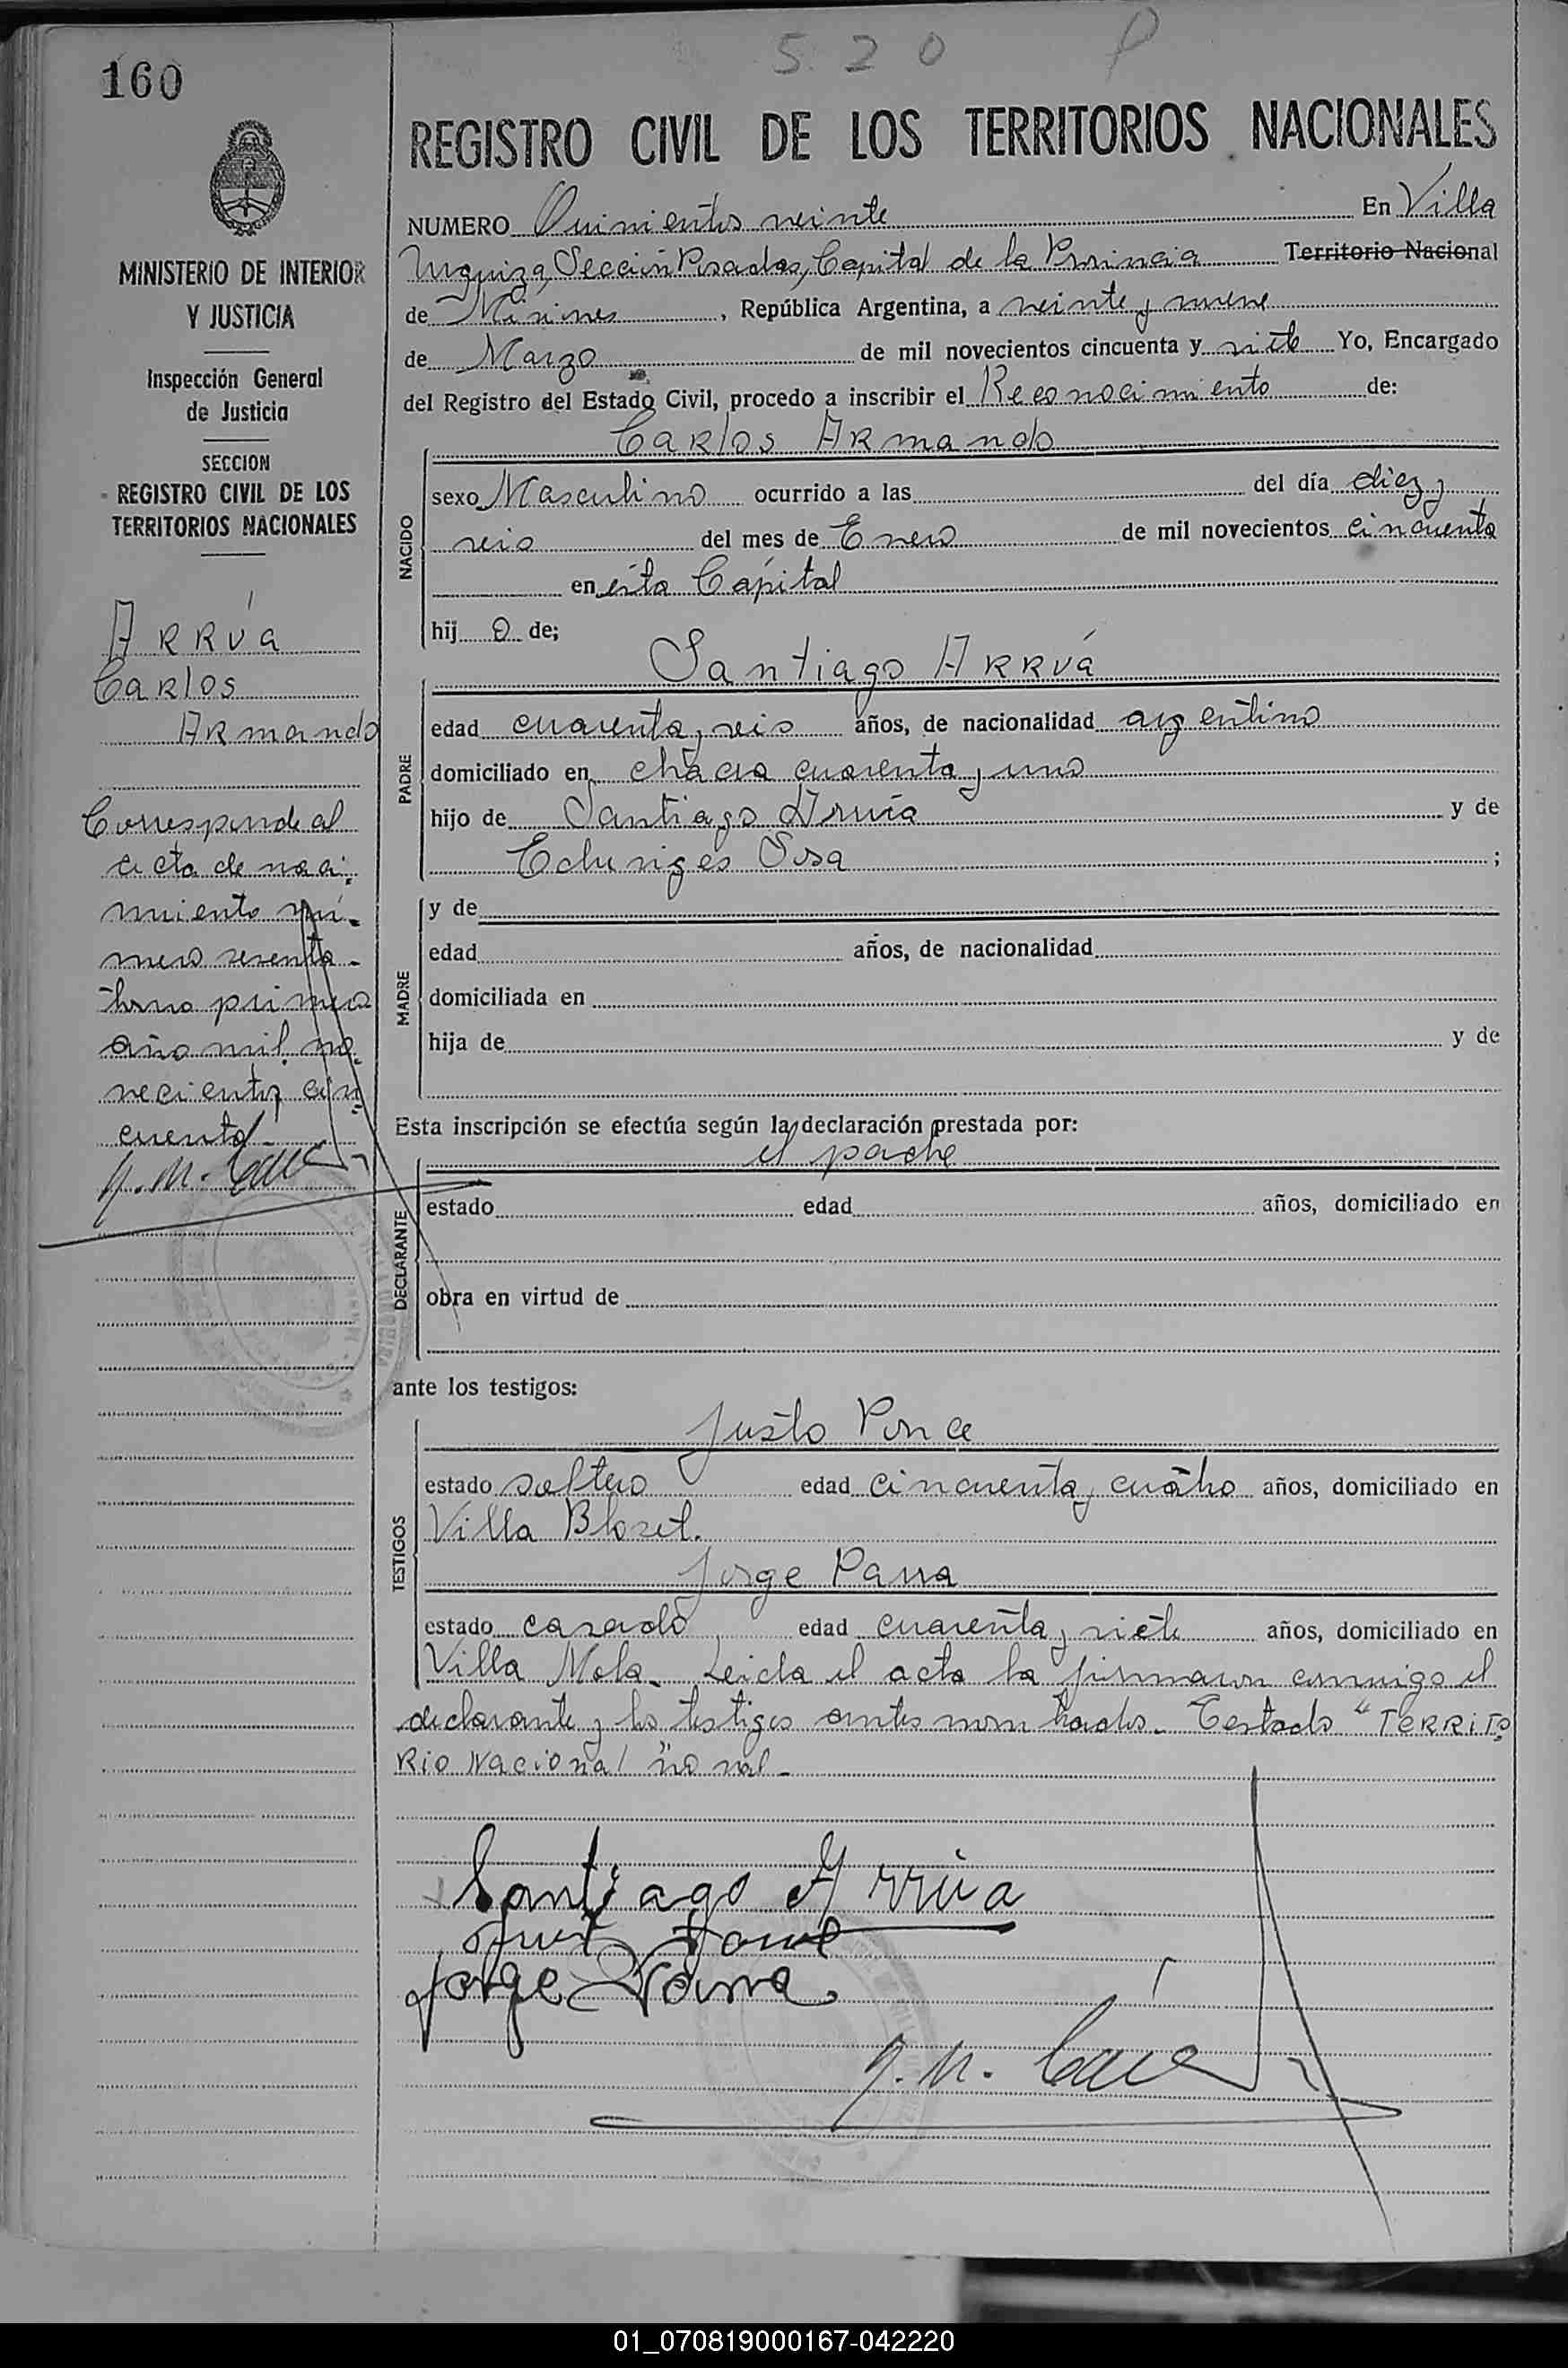 160
5 2 0 P
REGISTRO CIVIL DE LOS TERRITORIOS NACIONALES
MINISTERIO DE INTERIOR
Y JUSTICIA
Inspección General
de Justicia
SECCION
REGISTRO CIVIL DE LOS
TERRITORIOS NACIONALES
Arrúa
Carlos
Armando
Corresponde al
acta de naci-
miento nú-
mero sesenta-
tomo primero
año mil no-
vecientos cin
cuenta-
NUMERO Quinientos veinte En Villa
Urquiza, Sección Posadas, Capital de la Provincia Territorio Nacional
de Misiones, República Argentina, a veinte y nueve
de Marzo de mil novecientos cincuenta y siete Yo, Encargado
del Registro del Estado Civil, procedo a inscribir el Reconocimiento de:
Carlos Armando
NACIDO
sexo Masculino ocurrido a las del día diez y
seis del mes de Enero de mil novecientos cincuenta
en ésta Cápital
hij o de;
Santiago Arrúa
PADRE
edad cuarenta y seis años, de nacionalidad argentino
domiciliado en chacra cuarenta y uno
hijo de Santiago Arrúa y de
Eduviges Sosa ;
MADRE
y de
edad años, de nacionalidad
domiciliada en
hija de y de
Esta inscripción se efectúa según la declaración prestada por:
el padre
DECLARANTE
estado edad años, domiciliado en
obra en virtud de
ante los testigos:
Justo Ponce
TESTIGOS
estado soltero edad cincuenta y cuatro años, domiciliado en
Villa Bloset.
Jorge Parra
estado casado edad cuarenta y siete años, domiciliado en
Villa Mola. Leida el acta la firmaron conmigo el
declarante y los testigos antes nombrados. Testado "Territo
rio Nacional" no val-
Santiago Arrúa
Jorge Parra
01_070819000167-042220